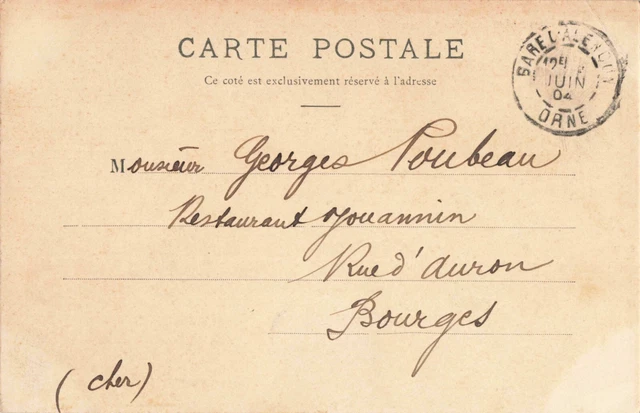 CARTE POSTALE
Ce coté est exclusivement réservé à l'adresse
GARE D'ALENCON
12E
JUIN
04
ORNE
Monsieur Georges Poubeau
Restaurant Jouannin
Rue d'Auron
Bourges
(Cher)